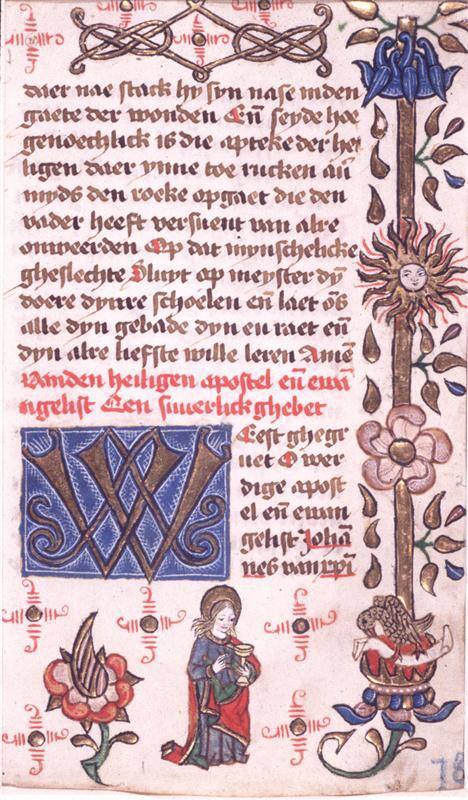 daer nae stack hy syn nase inden
gaete der wonden Eñ seyde hoe
genoechlick is die apteke der hei
ligen daer ynne toe rucken añ
myds den roeke opgaet die den
vader heeft versuent van alre
onweerden Op dat mynschelicke
gheslechte Sluyt op meyster dyn
doere dynre schoelen eñ laet õs
alle dyn gebade dyn eñ raet eñ
dyn alre liefste wille leren Amē
Vanden heiligen apostel eñ ewā
ngelist Een suuerlick ghebet
WEest ghegr
uet O wer
dige apost
el eñ ewan
gelist Johā
nes van xpī
78